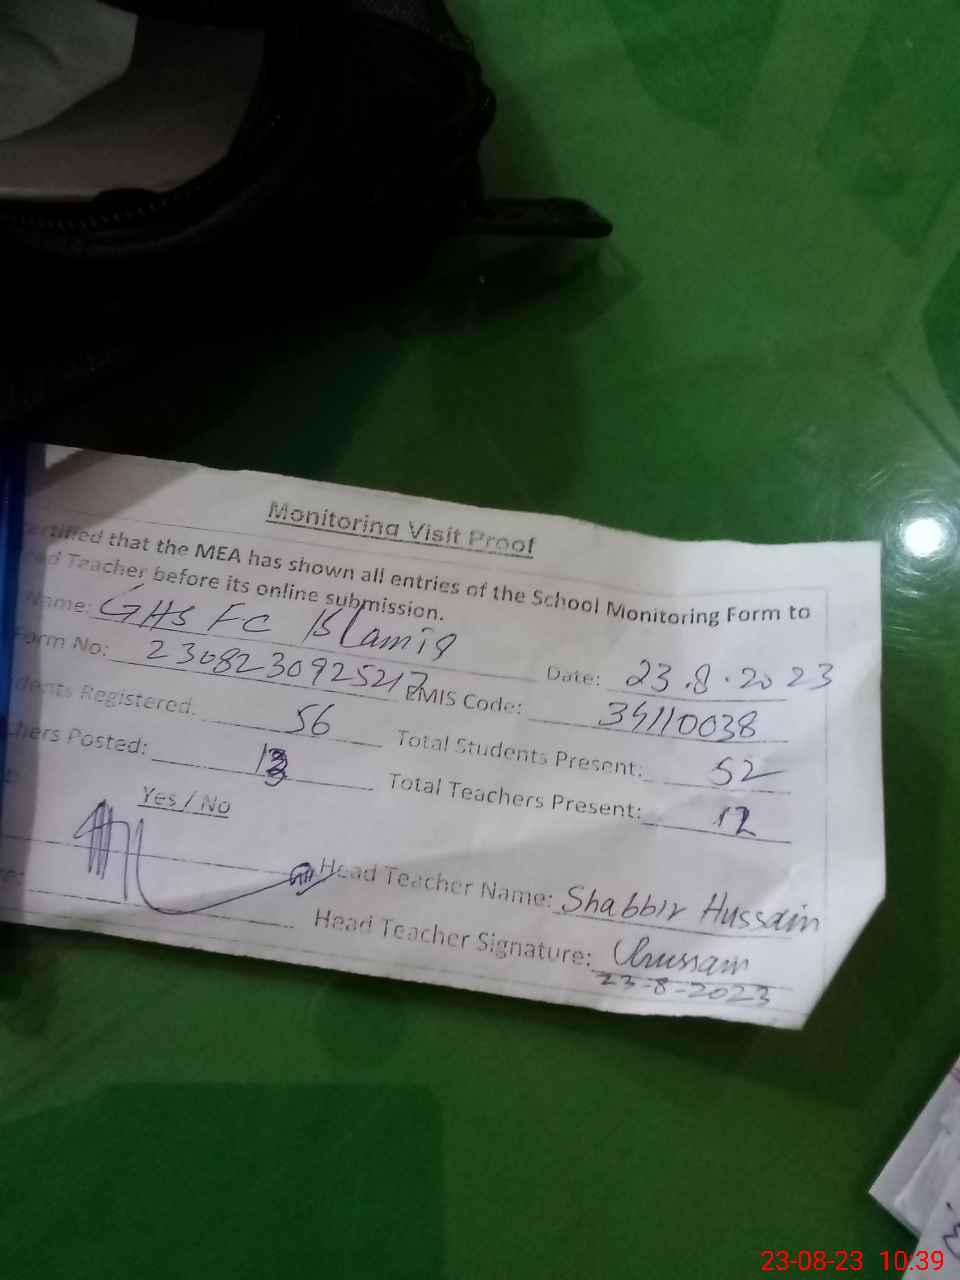 Monitoring Visit Proof
ertified that the MEA has shown all entries of the School Monitoring Form to
ad Teacher before its online submission.
Name: GHS FC Islamia
Date: 23.8.2023
orm No: 2308230925217
EMIS Code: 34110038
dents Registered: 56
Total Students Present: 52
hers Posted: 13
Total Teachers Present: 12
Yes / No
Head Teacher Name: Shabbir Hussain
Head Teacher Signature:
23-8-2023
23-08-23 10:39